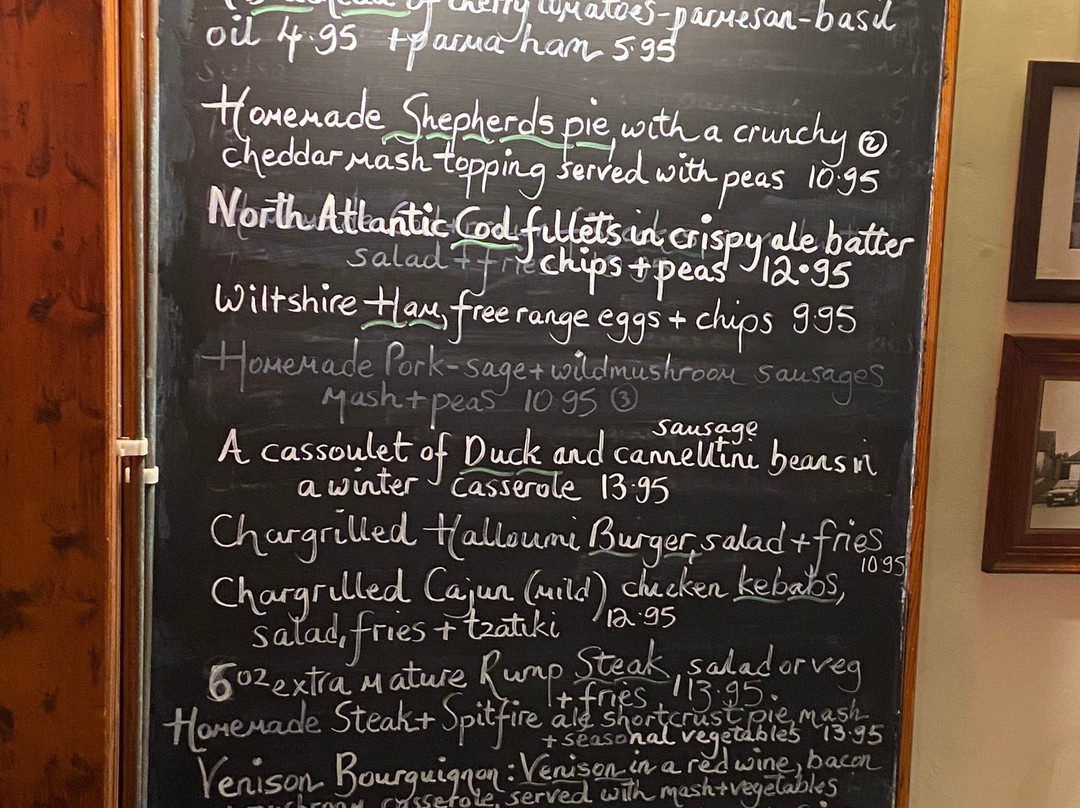 of cherry tomatoes-parmesan-basil
oil 4.95 + parma ham 5.95
Homemade Shepherds pie, with a crunchy ②
cheddar mash topping served with peas 10.95
North Atlantic Cod fillets in crispy ale batter
salad + fries chips + peas 12.95
Wiltshire Ham, free range eggs + chips 9.95
Homemade Pork-sage + wildmushroom sausages
Mash + peas 10.95 ③
sausage
A cassoulet of Duck and cannellini beans in
a winter casserole 13.95
Chargrilled Halloumi Burger, salad + fries
10.95
Chargrilled Cajun (mild) chicken kebabs,
salad, fries + tzatiki 12.95
6oz extra mature Rump Steak, salad or veg
+ fries 13.95.
Homemade Steak + Spitfire ale shortcrust pie, mash
+ seasonal vegetables 13.95
Venison Bourguignon: Venison in a red wine, bacon
mushroom casserole, served with mash + vegetables